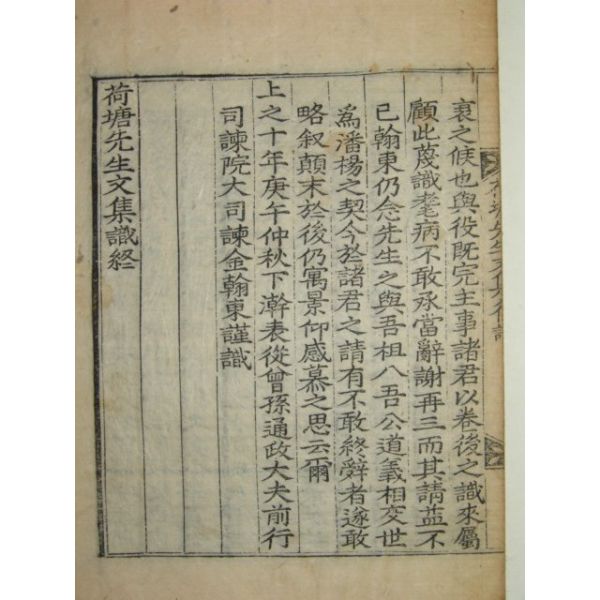 荷塘先生文集後識
衰之候也與役既完主事諸君以卷後之識來屬
顧此蔑識耄病不敢承當辭謝再三而其請益不
已翰東仍念先生之與吾祖八吾公道義相交世
爲潘楊之契今於諸君之請有不敢終辭者遂敢
略叙顛末於後仍寓景仰感慕之思云爾
上之十年庚午仲秋下澣表從曾孫通政大夫前行
司諫院大司諫金翰東謹識
荷塘先生文集識終